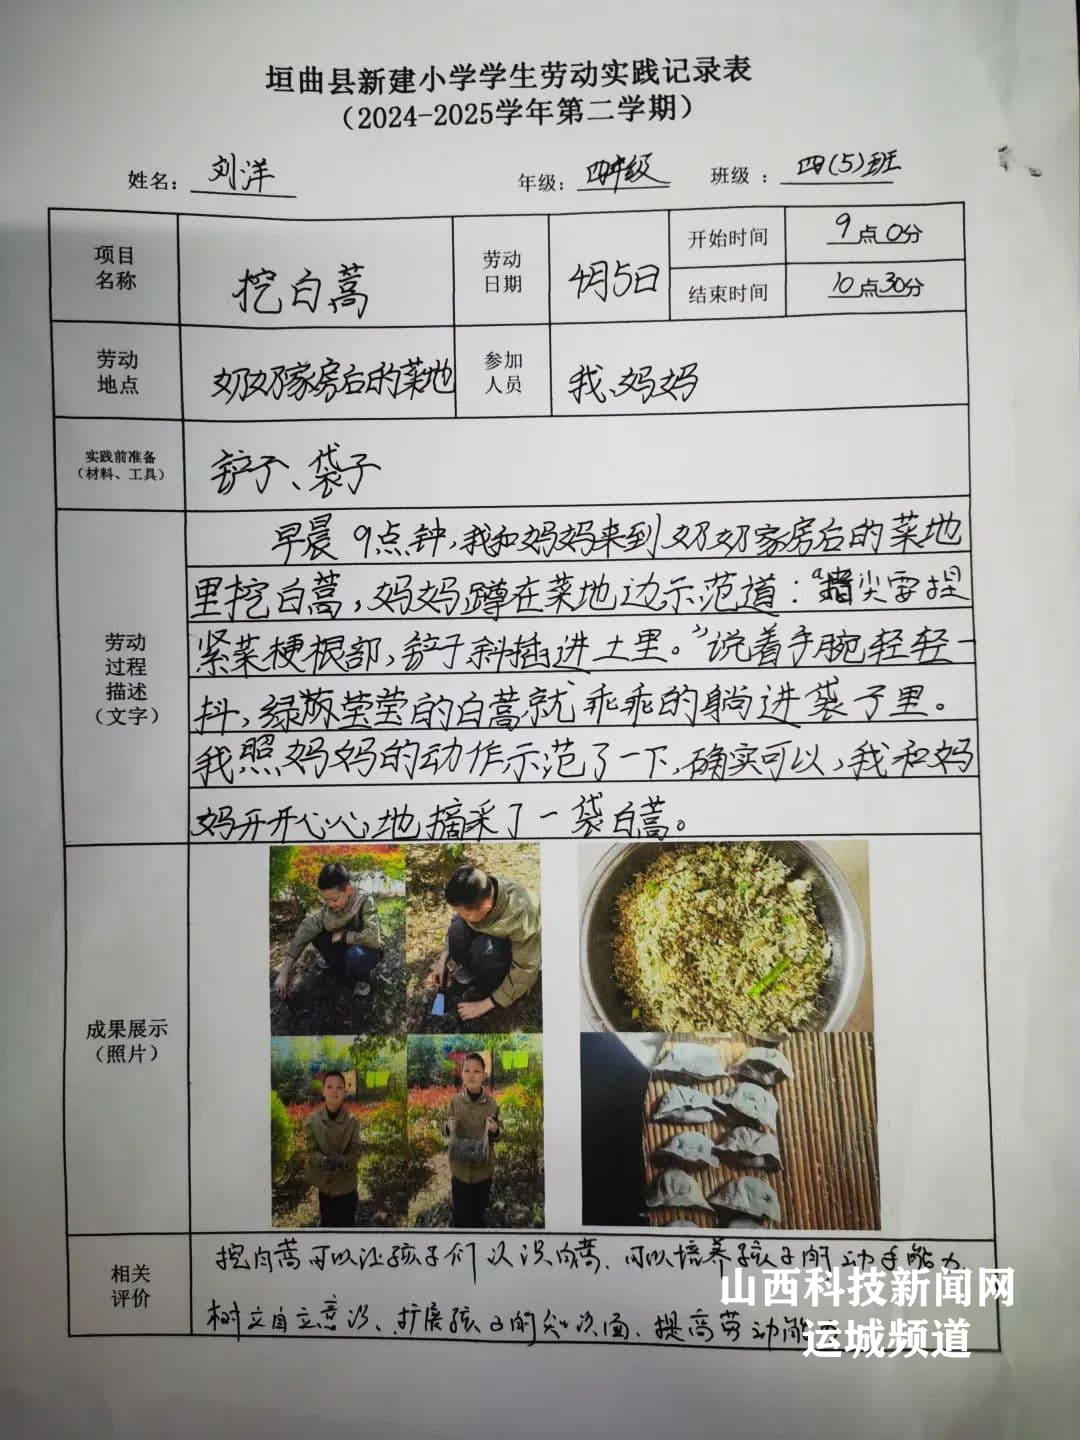 垣曲县新建小学学生劳动实践记录表
（2024-2025学年第二学期）
姓名： 刘洋 年级： 四年级 班级： 四(5)班
项目名称 挖白蒿 劳动日期 4月5日 开始时间 9点0分
结束时间 10点30分
劳动地点 奶奶家房后的菜地 参加人员 我、妈妈
实践前准备（材料、工具） 铲子、袋子
劳动过程描述（文字）
早晨9点钟，我和妈妈来到奶奶家房后的菜地
里挖白蒿，妈妈蹲在菜地边示范道：“指尖要捏
紧菜梗根部，铲子斜插进土里。”说着手腕轻轻一
抖，绿莹莹的白蒿就乖乖的躺进袋子里。
我照妈妈的动作示范了一下，确实可以，我和妈
妈开开心心地摘采了一袋白蒿。
成果展示（照片）
相关评价
挖白蒿可以让孩子们认识白蒿、可以培养孩子的动手能力、
树立自立意识、扩展孩子的知识面、提高劳动能
山西科技新闻网
运城频道